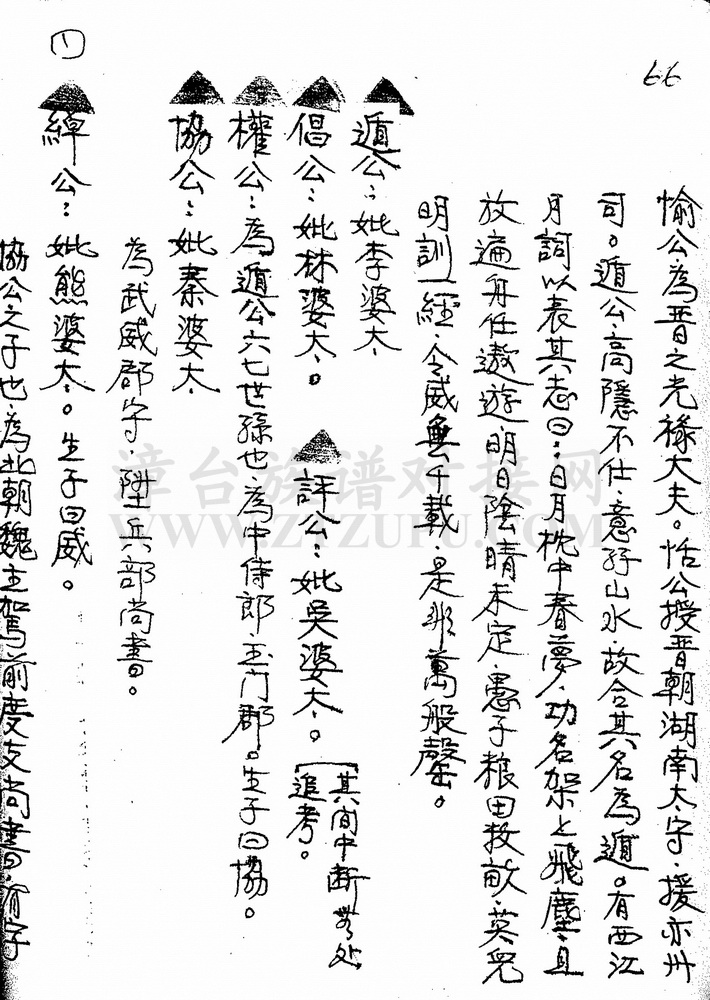 66
愉公為晋之光祿大夫。恬公授晋朝湖南太守·援亦州
司。遁公高隱不仕·意好山水·故合其名為遁。有西江
月詞以表其志曰：日月枕中春夢·功名架上飛塵·且
放遍舟任遨遊·明日陰晴未定·愚子粮田救畝·英兒
明訓一經·令威無千載·是非萬般罄。
遁公：妣李婆太
倡公：妣林婆太。
評公：妣吳婆太。
[其间中断无处
追考。
權公：為遁公六七世孫也·為中侍郎玉门郡。生子曰協。
協公：妣秦婆太
為武威郡守·陞兵部尚書。
綽公：妣熊婆太。生子曰威。
協公之子也·為北朝魏主駕前度支尚書·有字
1
漳台族谱对接网
WWW.ZTZUPU.COM